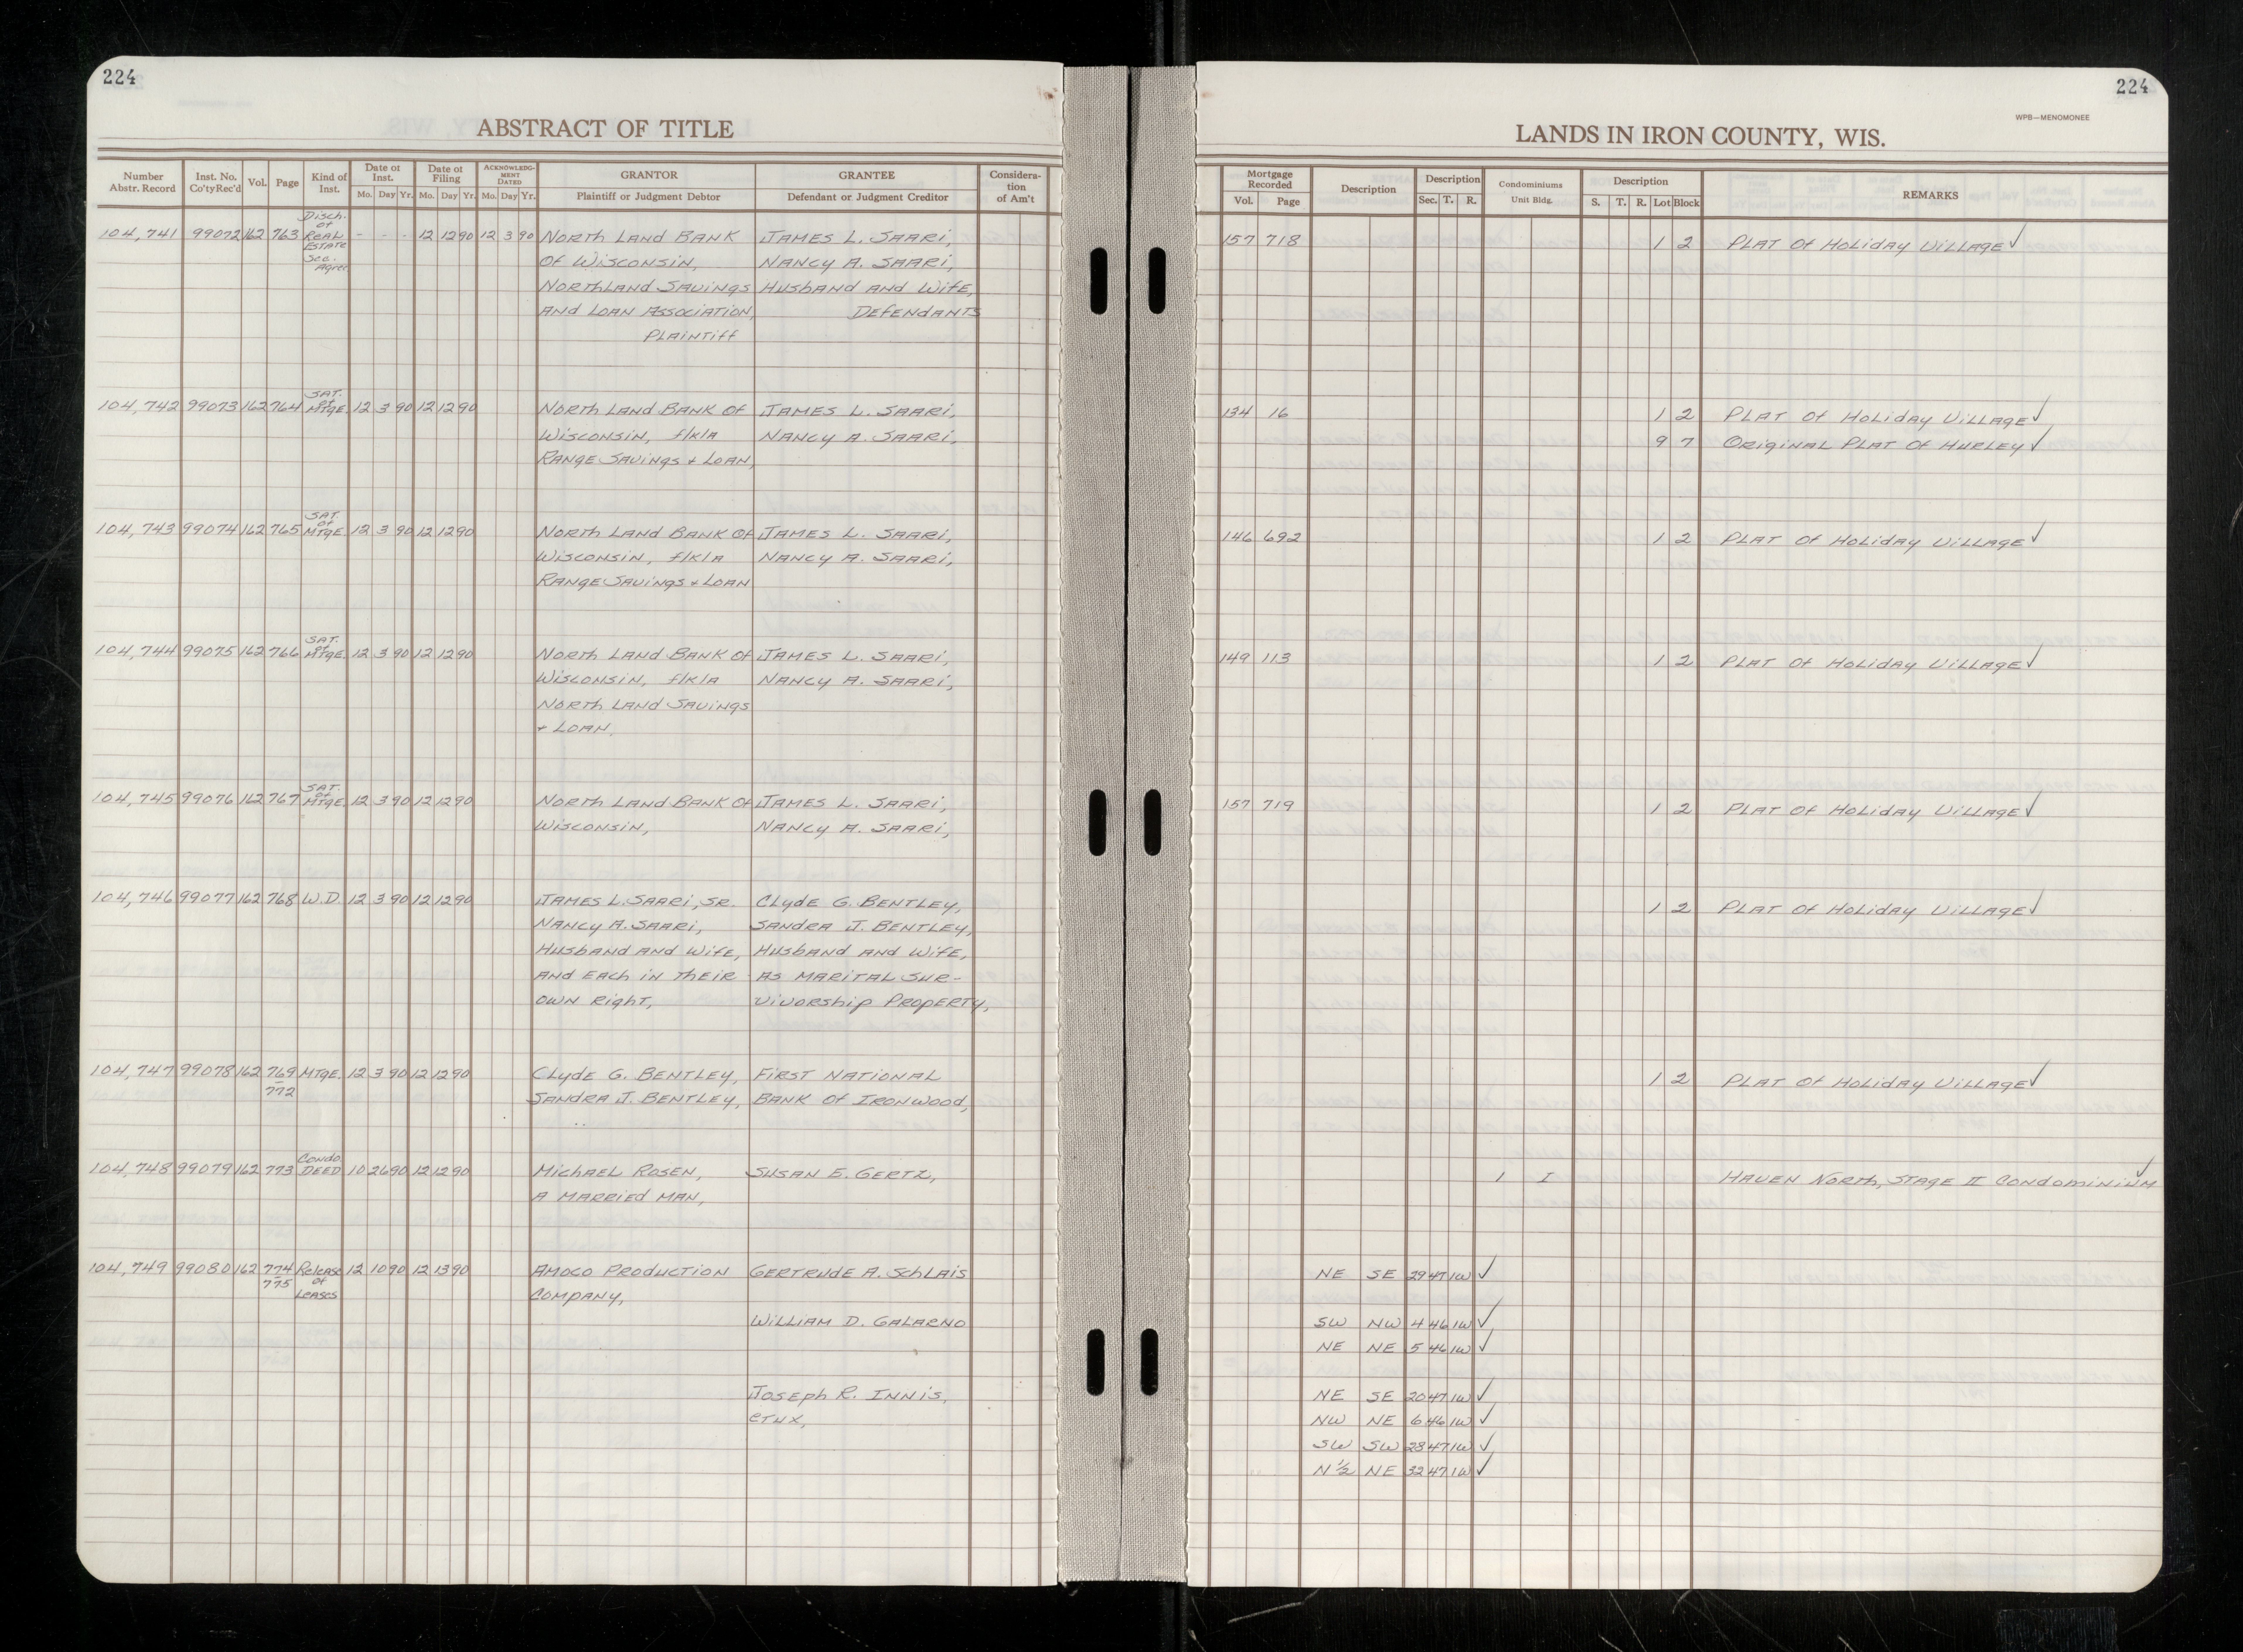 224
ABSTRACT OF TITLE
Number Abstr. Record | Inst. No. Co'ty Rec'd | Vol. | Page | Kind of Inst. | Date of Inst. Mo. Day Yr. | Date of Filing Mo. Day Yr. | ACKNOWLEDGMENT DATED Mo. Day Yr. | GRANTOR Plaintiff or Judgment Debtor | GRANTEE Defendant or Judgment Creditor | Consideration of Am't
104,741 99072 162 763 Disch. of Real Estate Sec. Agree. - - - 12 12 90 12 3 90 North Land Bank James L. Saari,
of Wisconsin, Nancy A. Saari,
Northland Savings Husband and Wife,
and Loan Association, Defendants
Plaintiff
104,742 99073 162 764 Sat. of Mtge. 12 3 90 12 12 90 North Land Bank of James L. Saari,
Wisconsin, f/k/a Nancy A. Saari,
Range Savings + Loan,
104,743 99074 162 765 Sat. of Mtge. 12 3 90 12 12 90 North Land Bank of James L. Saari,
Wisconsin, f/k/a Nancy A. Saari,
Range Savings + Loan
104,744 99075 162 766 Sat. of Mtge. 12 3 90 12 12 90 North Land Bank of James L. Saari,
Wisconsin, f/k/a Nancy A. Saari,
North Land Savings
+ Loan.
104,745 99076 162 767 Sat. of Mtge. 12 3 90 12 12 90 North Land Bank of James L. Saari,
Wisconsin, Nancy A. Saari,
104,746 99077 162 768 W.D. 12 3 90 12 12 90 James L. Saari, Sr. Clyde G. Bentley,
Nancy A. Saari, Sandra J. Bentley,
Husband and Wife, Husband and Wife,
and each in their as marital sur-
own right, vivorship property,
104,747 99078 162 769 Mtge. 12 3 90 12 12 90 Clyde G. Bentley, First National
- 772 Sandra J. Bentley, Bank of Ironwood,
104,748 99079 162 773 Condo. Deed 10 26 90 12 12 90 Michael Rosen, Susan E. Gertz,
a married man,
104,749 99080 162 774 - 775 Release of Leases 12 10 90 12 13 90 Amoco Production Gertrude A. Schlais
Company,
William D. Galarno
Joseph R. Innis,
etux,
224
WPB—MENOMONEE
LANDS IN IRON COUNTY, WIS.
Mortgage Recorded Vol. Page | Description | Description Sec. T. R. | Condominiums Unit Bldg. | Description S. T. R. Lot Block | REMARKS
157 718 1 2 Plat of Holiday Village ✓
134 16 1 2 Plat of Holiday Village ✓
9 7 Original Plat of Hurley ✓
146 692 1 2 Plat of Holiday Village ✓
149 113 1 2 Plat of Holiday Village ✓
157 719 1 2 Plat of Holiday Village ✓
1 2 Plat of Holiday Village ✓
1 2 Plat of Holiday Village ✓
1 I Haven North, Stage II Condominium ✓
NE SE 29 47 1W ✓
SW NW 4 46 1W ✓
NE NE 5 46 1W ✓
NE SE 20 47 1W ✓
NW NE 6 46 1W ✓
SW SW 28 47 1W ✓
N½ NE 32 47 1W ✓